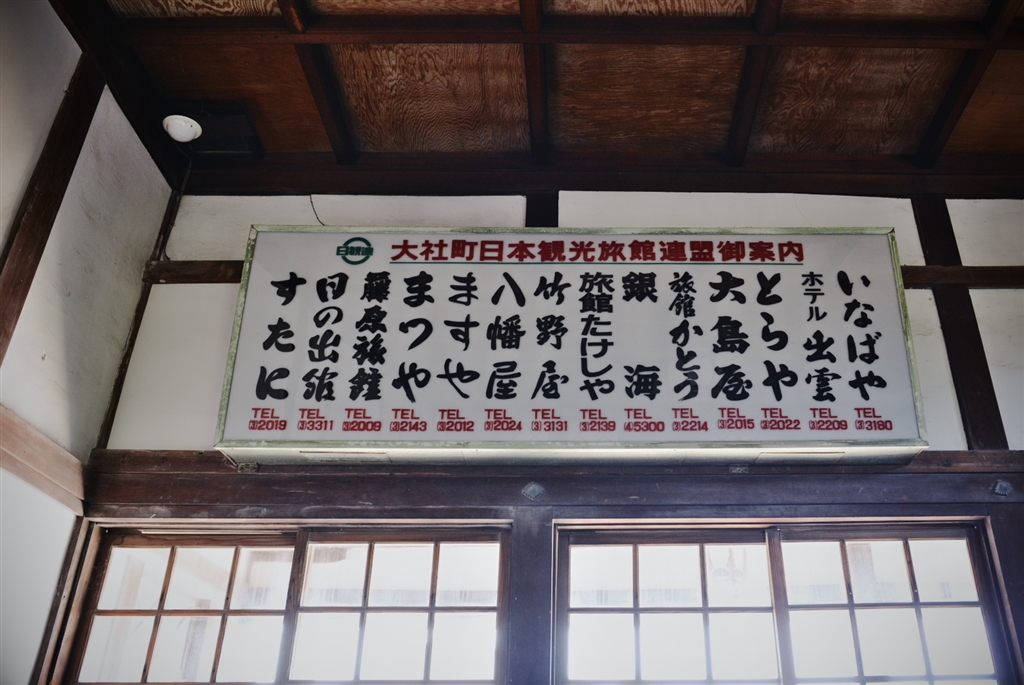 日観連
大社町日本観光旅館連盟御案内
いなばや
TEL ③3180
ホテル出雲
TEL ③2209
とらや
TEL ③2022
大島屋
TEL ③2015
旅館かとう
TEL ③2214
銀海
TEL ④5300
旅館たけしや
TEL ③2139
竹野屋
TEL ③3131
八幡屋
TEL ③2024
ますや
TEL ③2012
まつや
TEL ③2143
藤原旅館
TEL ③2009
日の出館
TEL ③3311
すたに
TEL ③2019